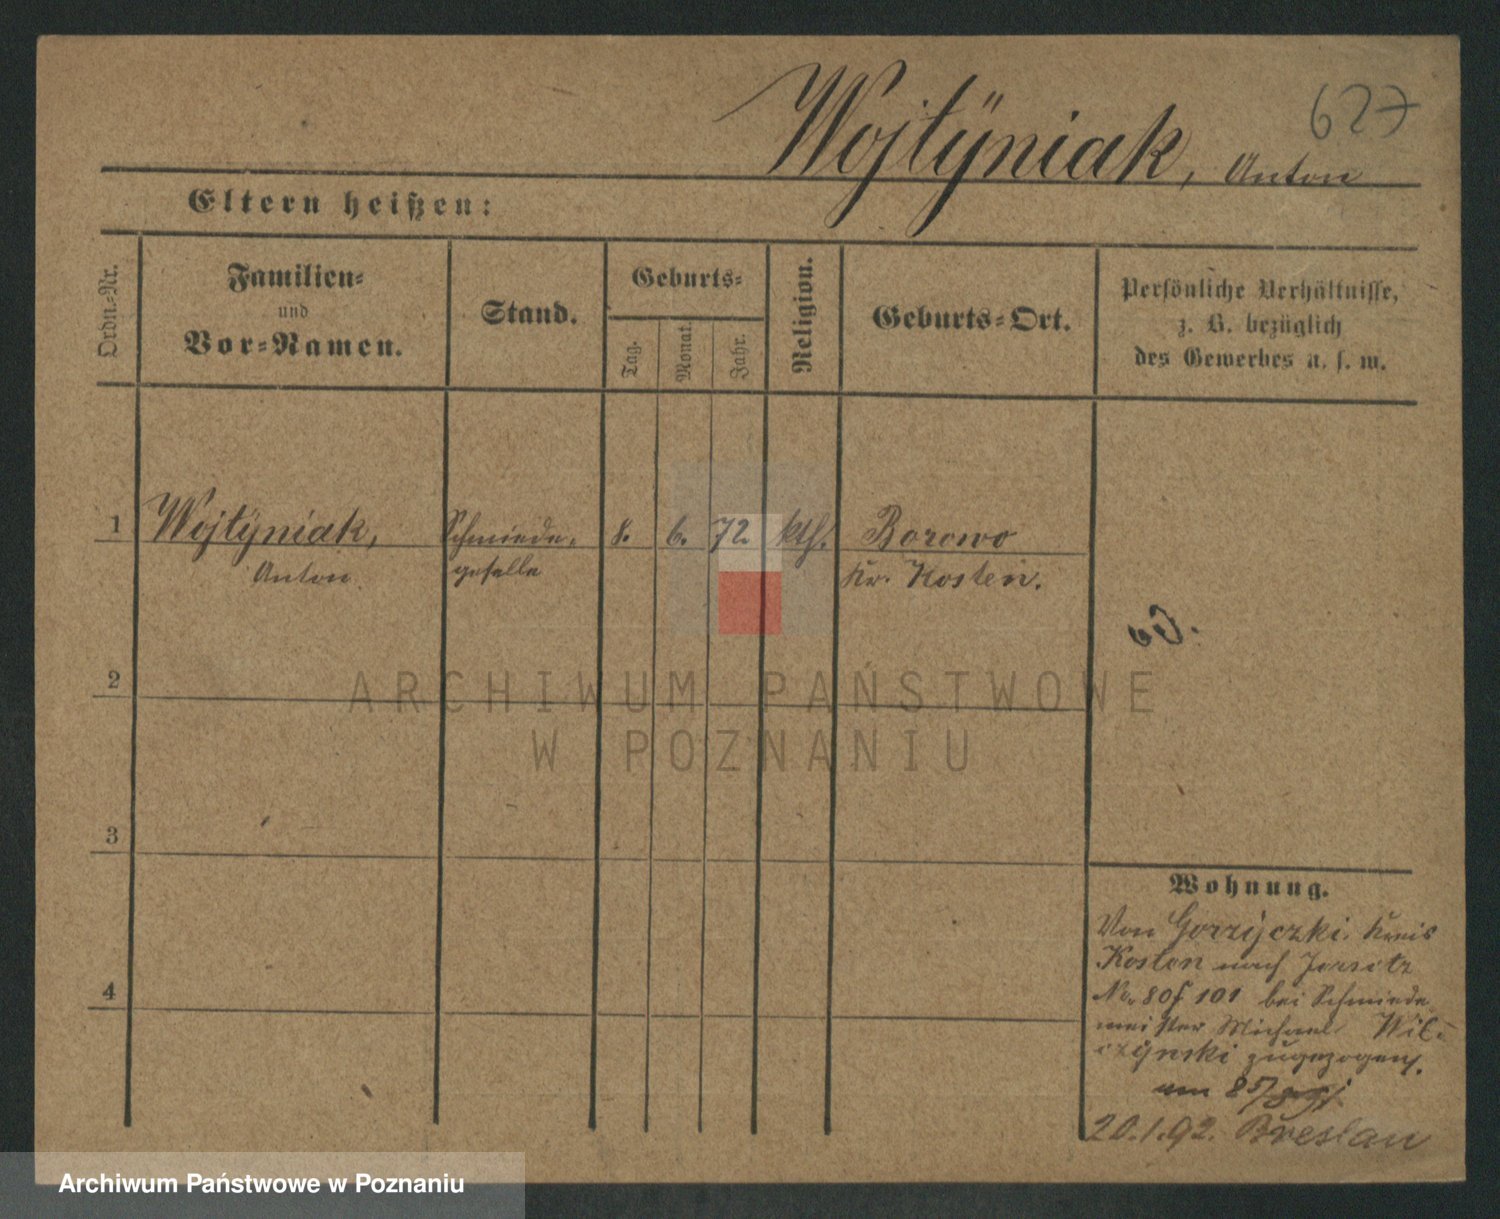 627
Wojtÿniak, Anton
Eltern heißen:
Ordn.-Nr.
Familien-
und
Vor-Namen.
Stand.
Geburts-
Tag.
Monat.
Jahr.
Religion.
Geburts-Ort.
Persönliche Verhältnisse,
z. B. bezüglich
des Gewerbes u. s. w.
1
Wojtÿniak,
Anton
Schmiede-
geselle
8.
6.
72.
kth.
Borowo
Kr. Kosten.
2
3
4
ARCHIWUM PAŃSTWOWE
W POZNANIU
Wohnung.
Von Gorzyczki Kreis
Kosten nach
No. 101 bei Schmiede
meister Michael Wil-
czynski zugezogen.
am
20.1.92. Breslau
Archiwum Państwowe w Poznaniu